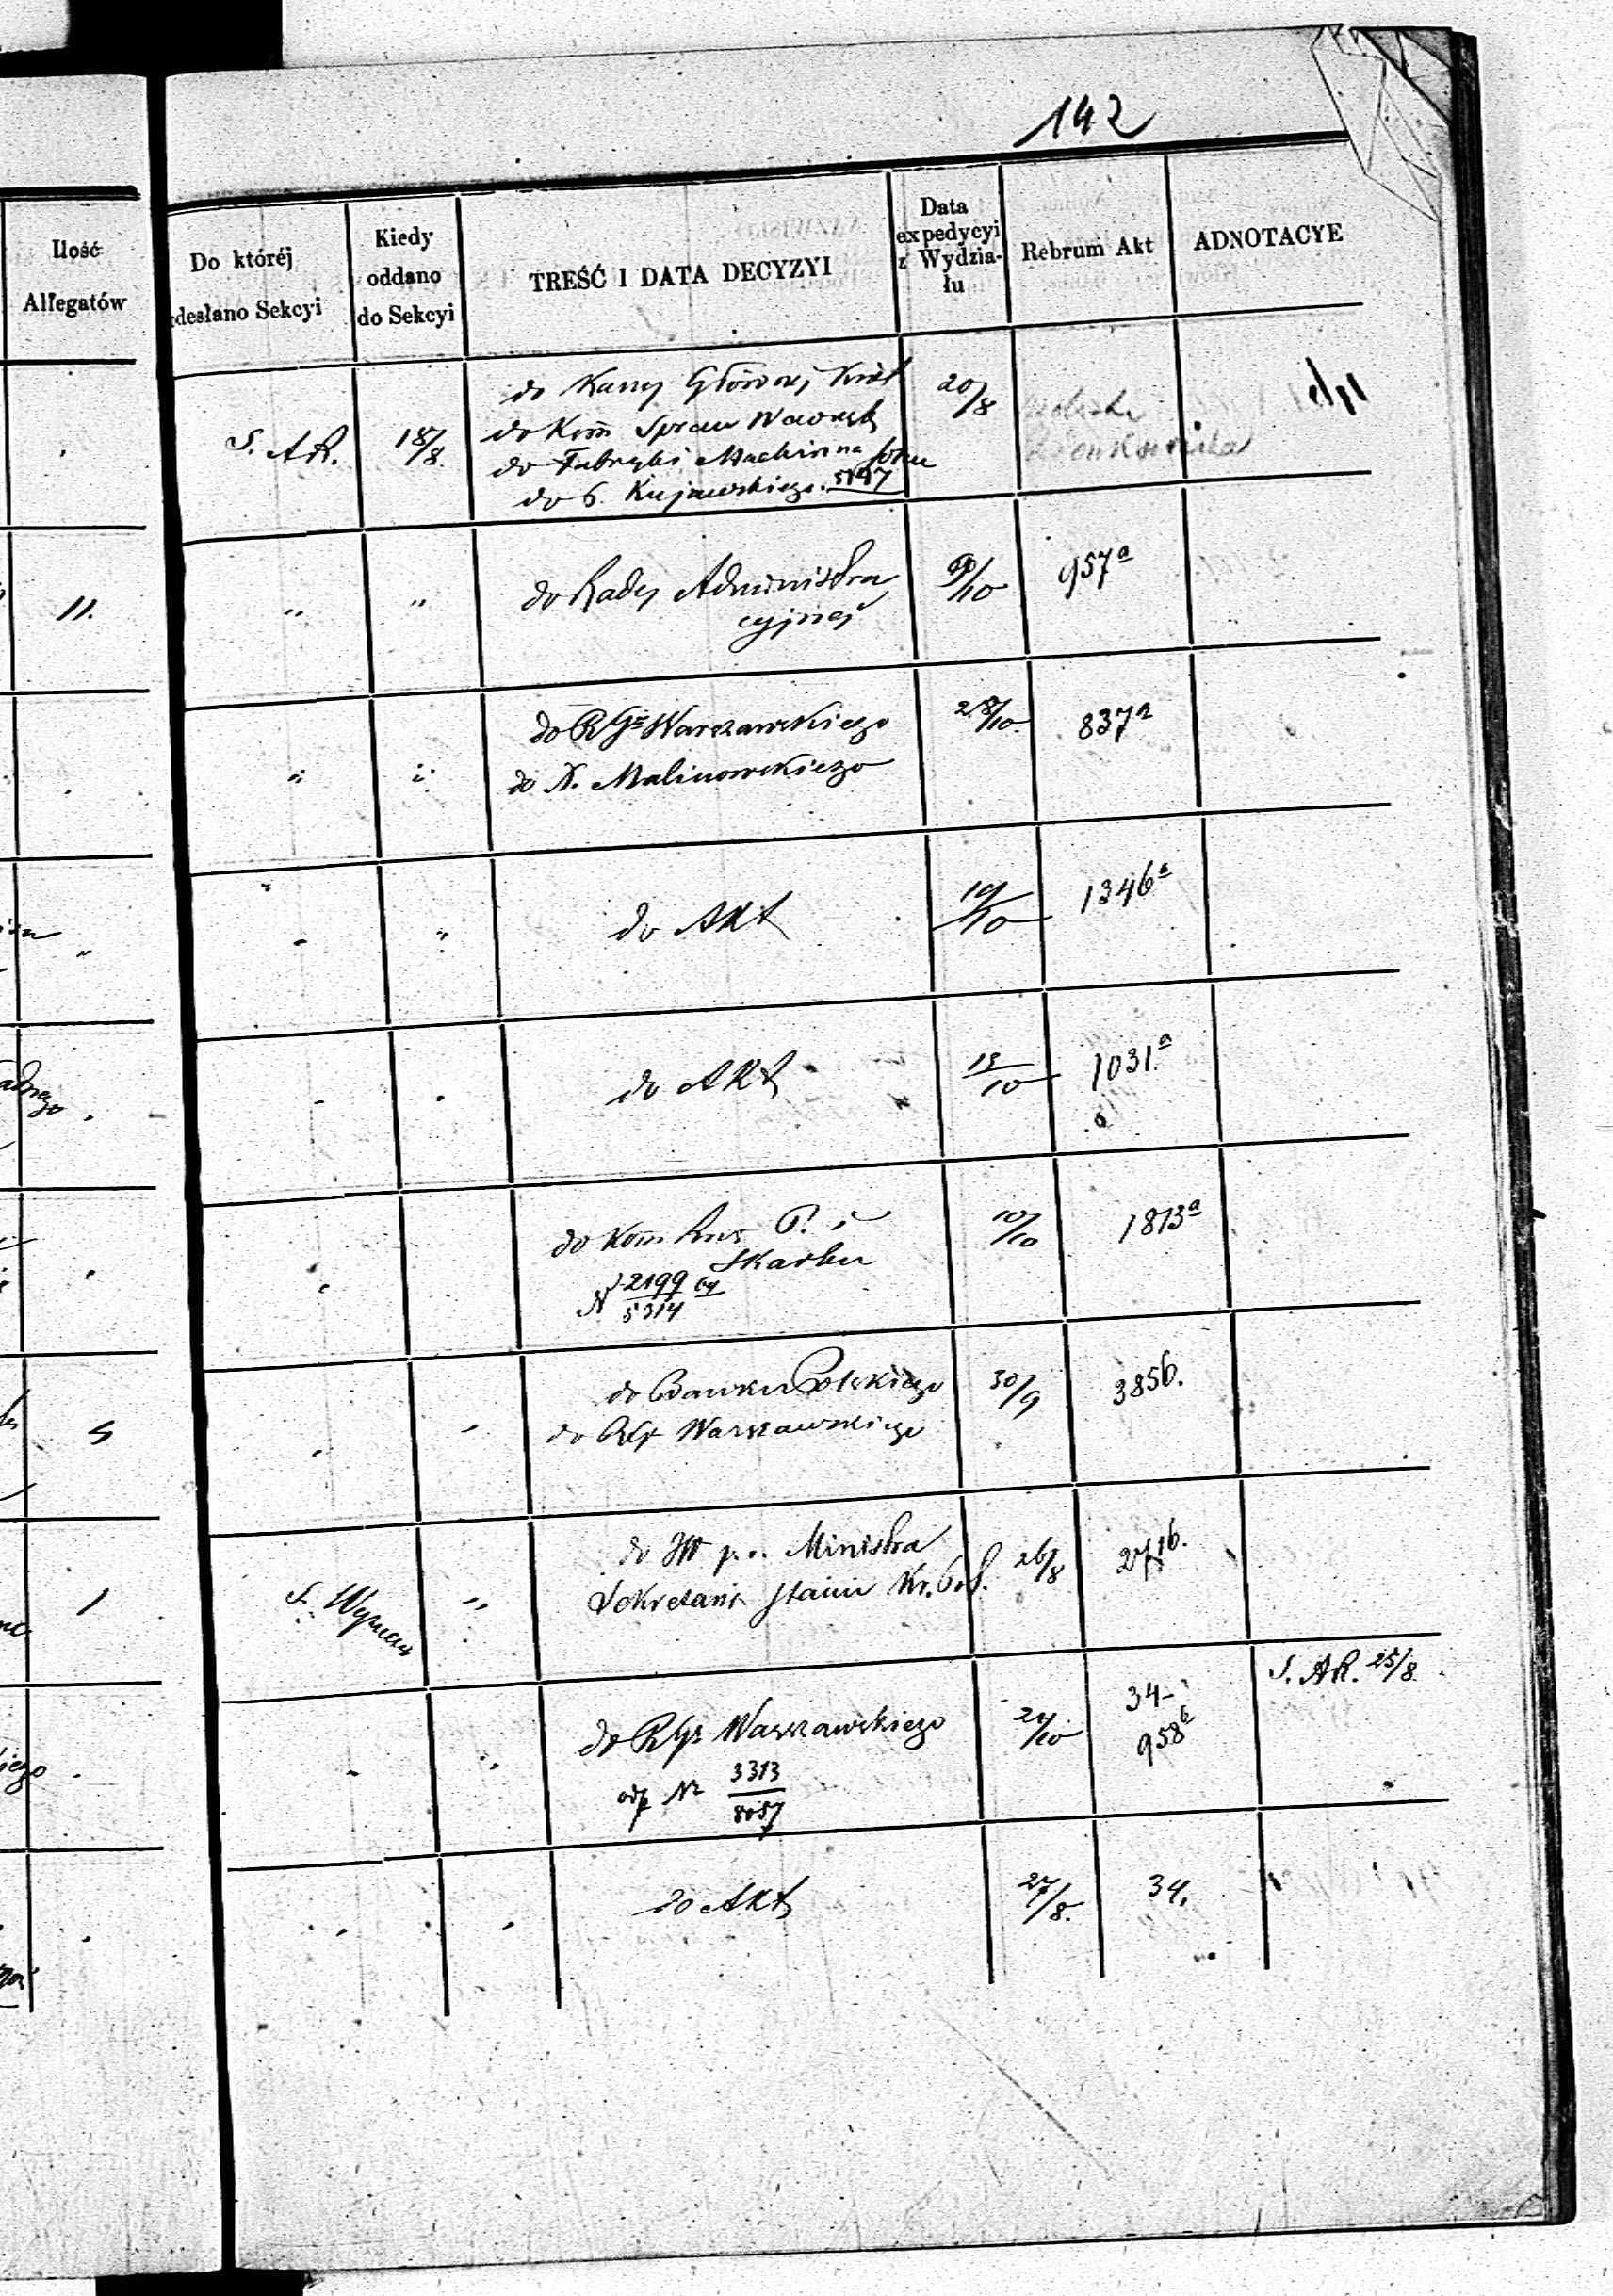 142
Ilość
Allegatów
Do któréj
desłano Sekcyi
Kiedy
oddano
do Sekcyi
TREŚĆ I DATA DECYZYI
Data
expedycyi
z Wydzia-
łu
Rebrum Akt
ADNOTACYE
S. AR.
18/8
do Kassy Głównej Król
do Kom Spraw Wewnęt
do Fabryki Machin na Solcu
do Kujawskiego. 5147
20/8
11.
"
"
do Rady Administra
cyjnej
9/10
957a
"
"
do RGo Warszawskiego
do N. Malinowskiego
28/10.
837a
"
"
do Akt
19/10
1346a
do Akt
13/10
1031.a
do Kom Rz P. i
Skarbu
N 2199/5314
10/10
1873a
4
do Banku Polskiego
do RGo Warszawskiego
30/9
385b.
1
S. Wyznań
"
do JW p.o. Ministra
Sekretarza Stanu Kr. Pol.
26/8
do RGo Warszawskiego
odp No 3313/8057
24/10
34-
958b
S. AR. 25/8.
do Akt
27/8.
34.